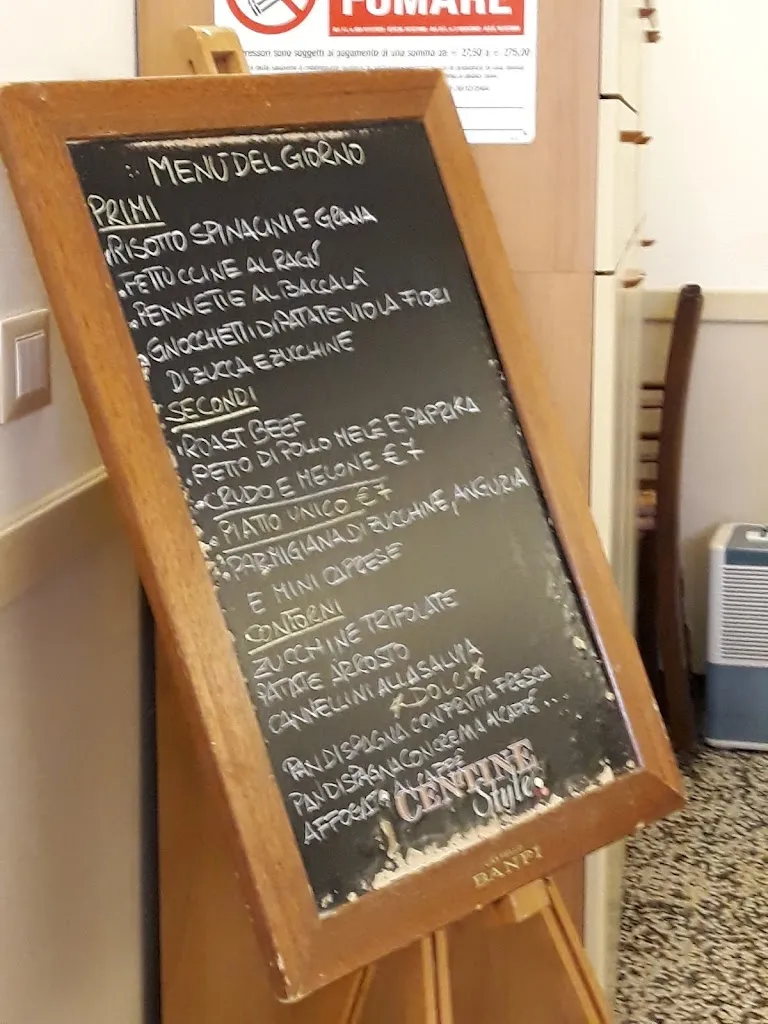 FUMARE
sono soggetti al pagamento di una somma da € 27,50 a € 275,00
MENÙ DEL GIORNO
PRIMI
RISOTTO SPINACINI E GRANA
FETTUCCINE AL RAGÙ
PENNETTE AL BACCALÀ
GNOCCHETTI DI PATATE VIOLA FIORI
DI ZUCCA E ZUCCHINE
SECONDI
ROAST BEEF
PETTO DI POLLO MELE E PAPRIKA
CRUDO E MELONE €7
PIATTO UNICO €7
PARMIGIANA DI ZUCCHINE, ANGURIA
E MINI CAPRESE
CONTORNI
ZUCCHINE TRIFOLATE
PATATE ARROSTO
CANNELLINI ALLA SALVIA
DOLCI
PAN DI SPAGNA CON FRUTTA FRESCA
PAN DI SPAGNA CON CREMA AL CAFFÈ...
AFFOGATO AL CAFFÈ
CENTINE
Style
BANFI